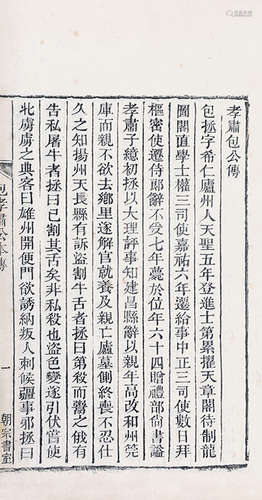 孝肅包公傳
包拯字希仁廬州人天聖五年登進士第累擢天章閣待制龍
圖閣直學士權三司使嘉祐六年遷給事中正三司使數日拜
樞密使遷侍郎辭不受七年薨於位年六十四贈禮部尚書諡
孝肅子繶初拯以大理評事知建昌縣辭以親年高改和州筦
庫而親不欲去鄉里遂解官就養及親亡廬墓側終喪不忍仕
久之知揚州天長縣有訴盜割牛舌者拯曰第殺而鬻之俄有
告私屠牛者拯曰已割其舌矣非私殺也盜色變遂引伏嘗使
北虜虜之典客曰雄州開便門欲誘納叛人刺候疆事邪拯曰
包孝肅公本傳
一
朝宗書室